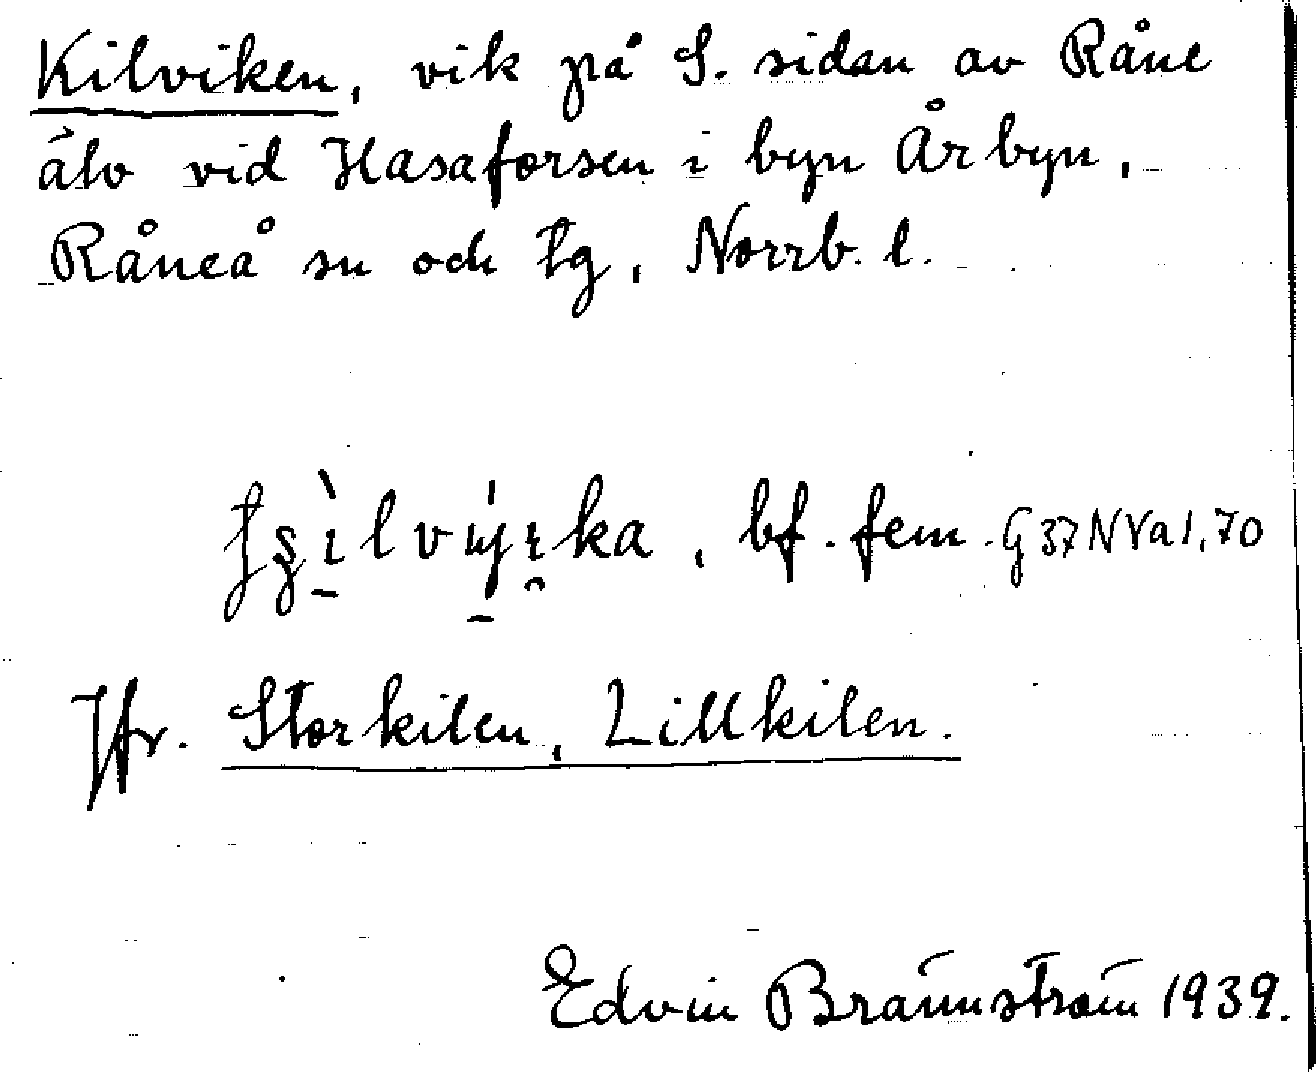 Kilviken, vik på S. sidan av Råne
älv vid Hasaforsen i byn Årbyn,
Råneå sn och tg, Norrb. l.
bf. fem. G 37 N Va 1, 70
Jfr. Storkilen, Lillkilen.
Edvin Brännström 1939.